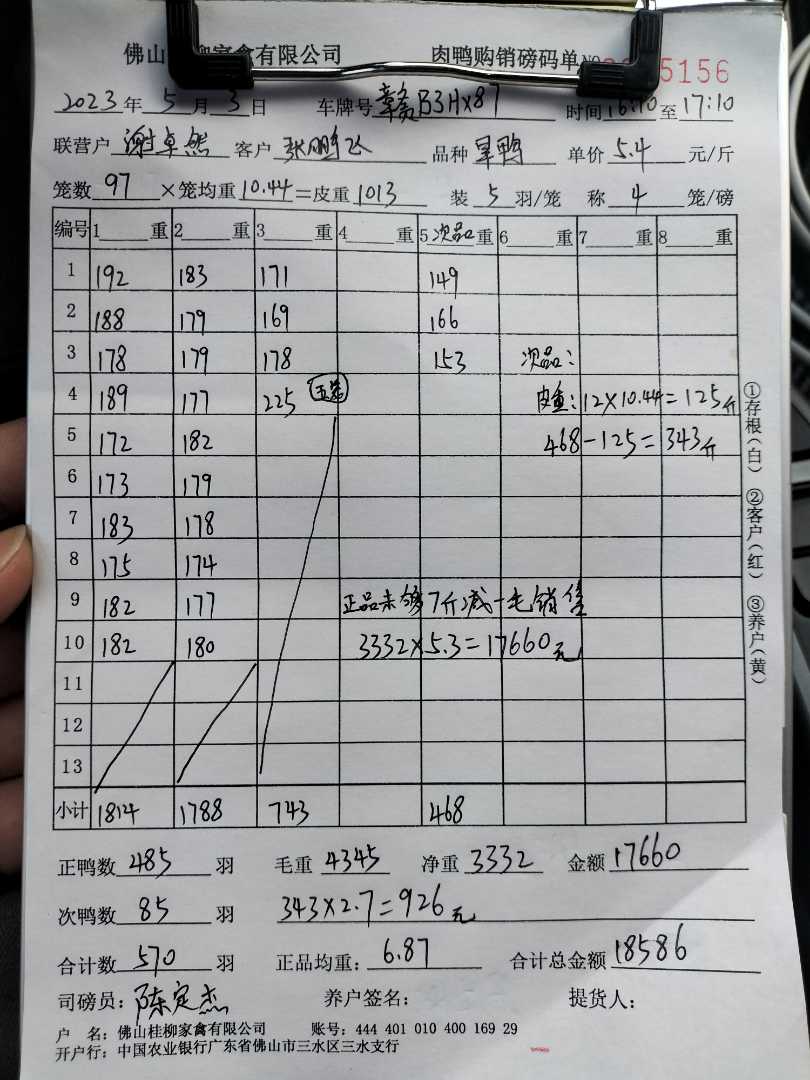 佛山 柳家禽有限公司 肉鸭购销磅码单 5156
2023年5月3日 车牌号 赣B3Hx87 时间16:10至17:10
联营户 谢卓然 客户 张鹏飞 品种 旱鸭 单价 5.4 元/斤
笼数 97 ×笼均重 10.44=皮重 1013 装 5 羽/笼 称 4 笼/磅
编号 1 重 2 重 3 重 4 重 5 次品 重 6 重 7 重 8 重
1 192 183 171 149
2 188 179 169 166
3 178 179 178 153 次品:
4 189 177 225 皮重:12×10.44=125斤
5 172 182 468-125=343斤
6 173 179
7 183 178
8 175 174
9 182 177 正品未够7斤减一毛销售
10 182 180 3332×5.3=17660元
11
12
13
小计 1814 1788 743 468
正鸭数 485 羽 毛重 4345 净重 3332 金额 17660
次鸭数 85 羽 343×2.7=926元
合计数 570 羽 正品均重: 6.87 合计总金额 18586
司磅员: 陈定杰 养户签名: 提货人:
户 名: 佛山桂柳家禽有限公司 账号: 444 401 010 400 169 29
开户行: 中国农业银行广东省佛山市三水区三水支行
①存根(白) ②客户(红) ③养户(黄)